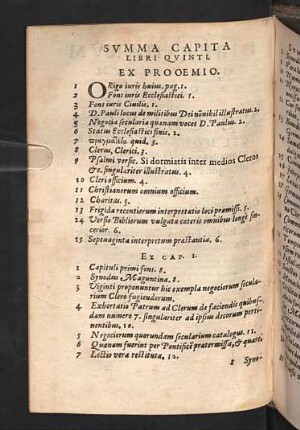 SVMMA CAPITA
LIBRI QVINTI.
EX PROOEMIO.
1 ORigo iuris huius. pag. 1.
2 Fons iuris Ecclesiastici. 1.
3 Fons iuris Ciuilis. 1.
4 D. Pauli locus de militibus Dei nõnihil illustratus. 2.
5 Negocia secularia quænam vocet D. Paulus. 2.
6 Status Ecclesiastici finis. 2.
7 quid. 3.
8 Clerus, Clerici. 3.
9 Psalmi versic. Si dormiatis inter medios Cleros
&c. singulariter illustratus. 4.
10 Cleri officium. 4.
11 Christianorum omnium officium.
12 Charitas. 5.
13 Frigida recentiorum interpretatio loci præmissi. 5.
14 Versio Bibliorum vulgata cæteris omnibus longè sin-
cerior. 6.
15 Septuaginta interpretum præstantia. 6.
EX CAP. I.
1 Capituli primi fons. 8.
2 Synodus Maguntina. 8.
3 Viginti proponuntur hic exempla negociorum secula-
rium Clero fugiendorum.
4 Exhortatio Patrum ad Clerum de faciendis quibus-
dam numero 7. singulariter ad ipsius decorum perti-
nentibus. 10.
5 Negociorum quorundam secularium catalogus. 11.
6 Quænam fuerint per Pontificē prætermissa, & quare.
7 Lectio vera restituta. 12.